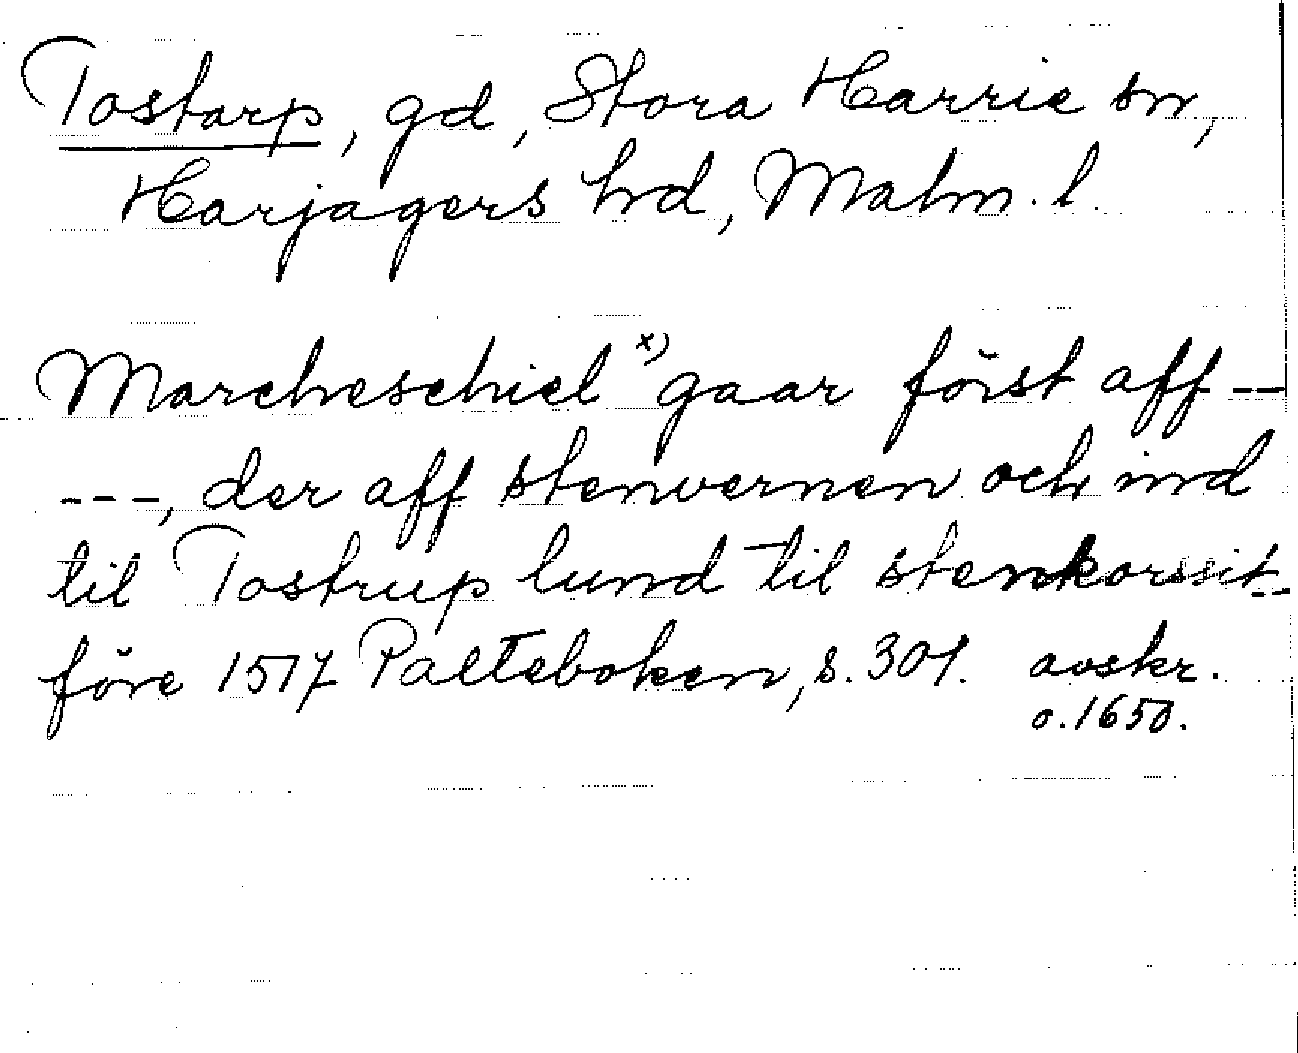 Tostarp, gd, Stora Harrie sn,
Harjagers hd, Malm. l.
Marcheschiel x) gaar först aff --
---, der aff stenvernen och ind
til Tostrup lund til stenkorssit --
före 1517 Palteboken, s. 301. avskr.
o. 1650.